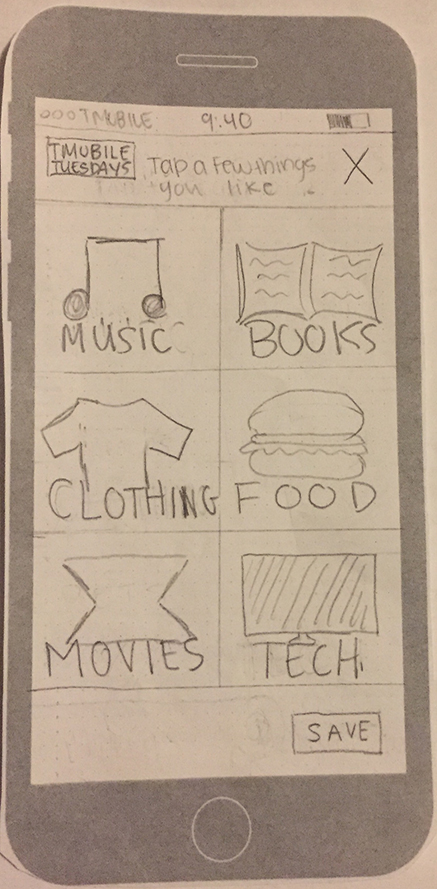 TMOBILE 9:40
TMOBILE
TUESDAYS
Tap a few things
you like
X
MUSIC
BOOKS
CLOTHING
FOOD
MOVIES
TECH
SAVE